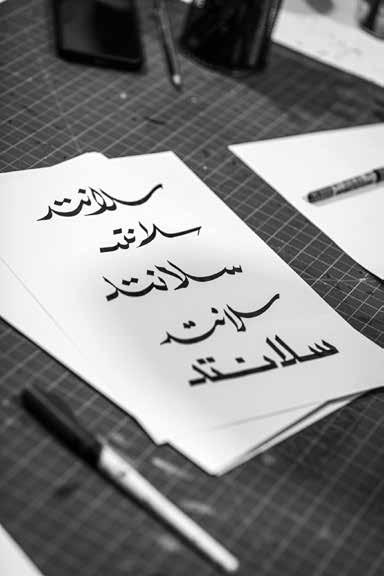 سلانتد
سلانتد
سلانتد
سلانتد
سلانتد